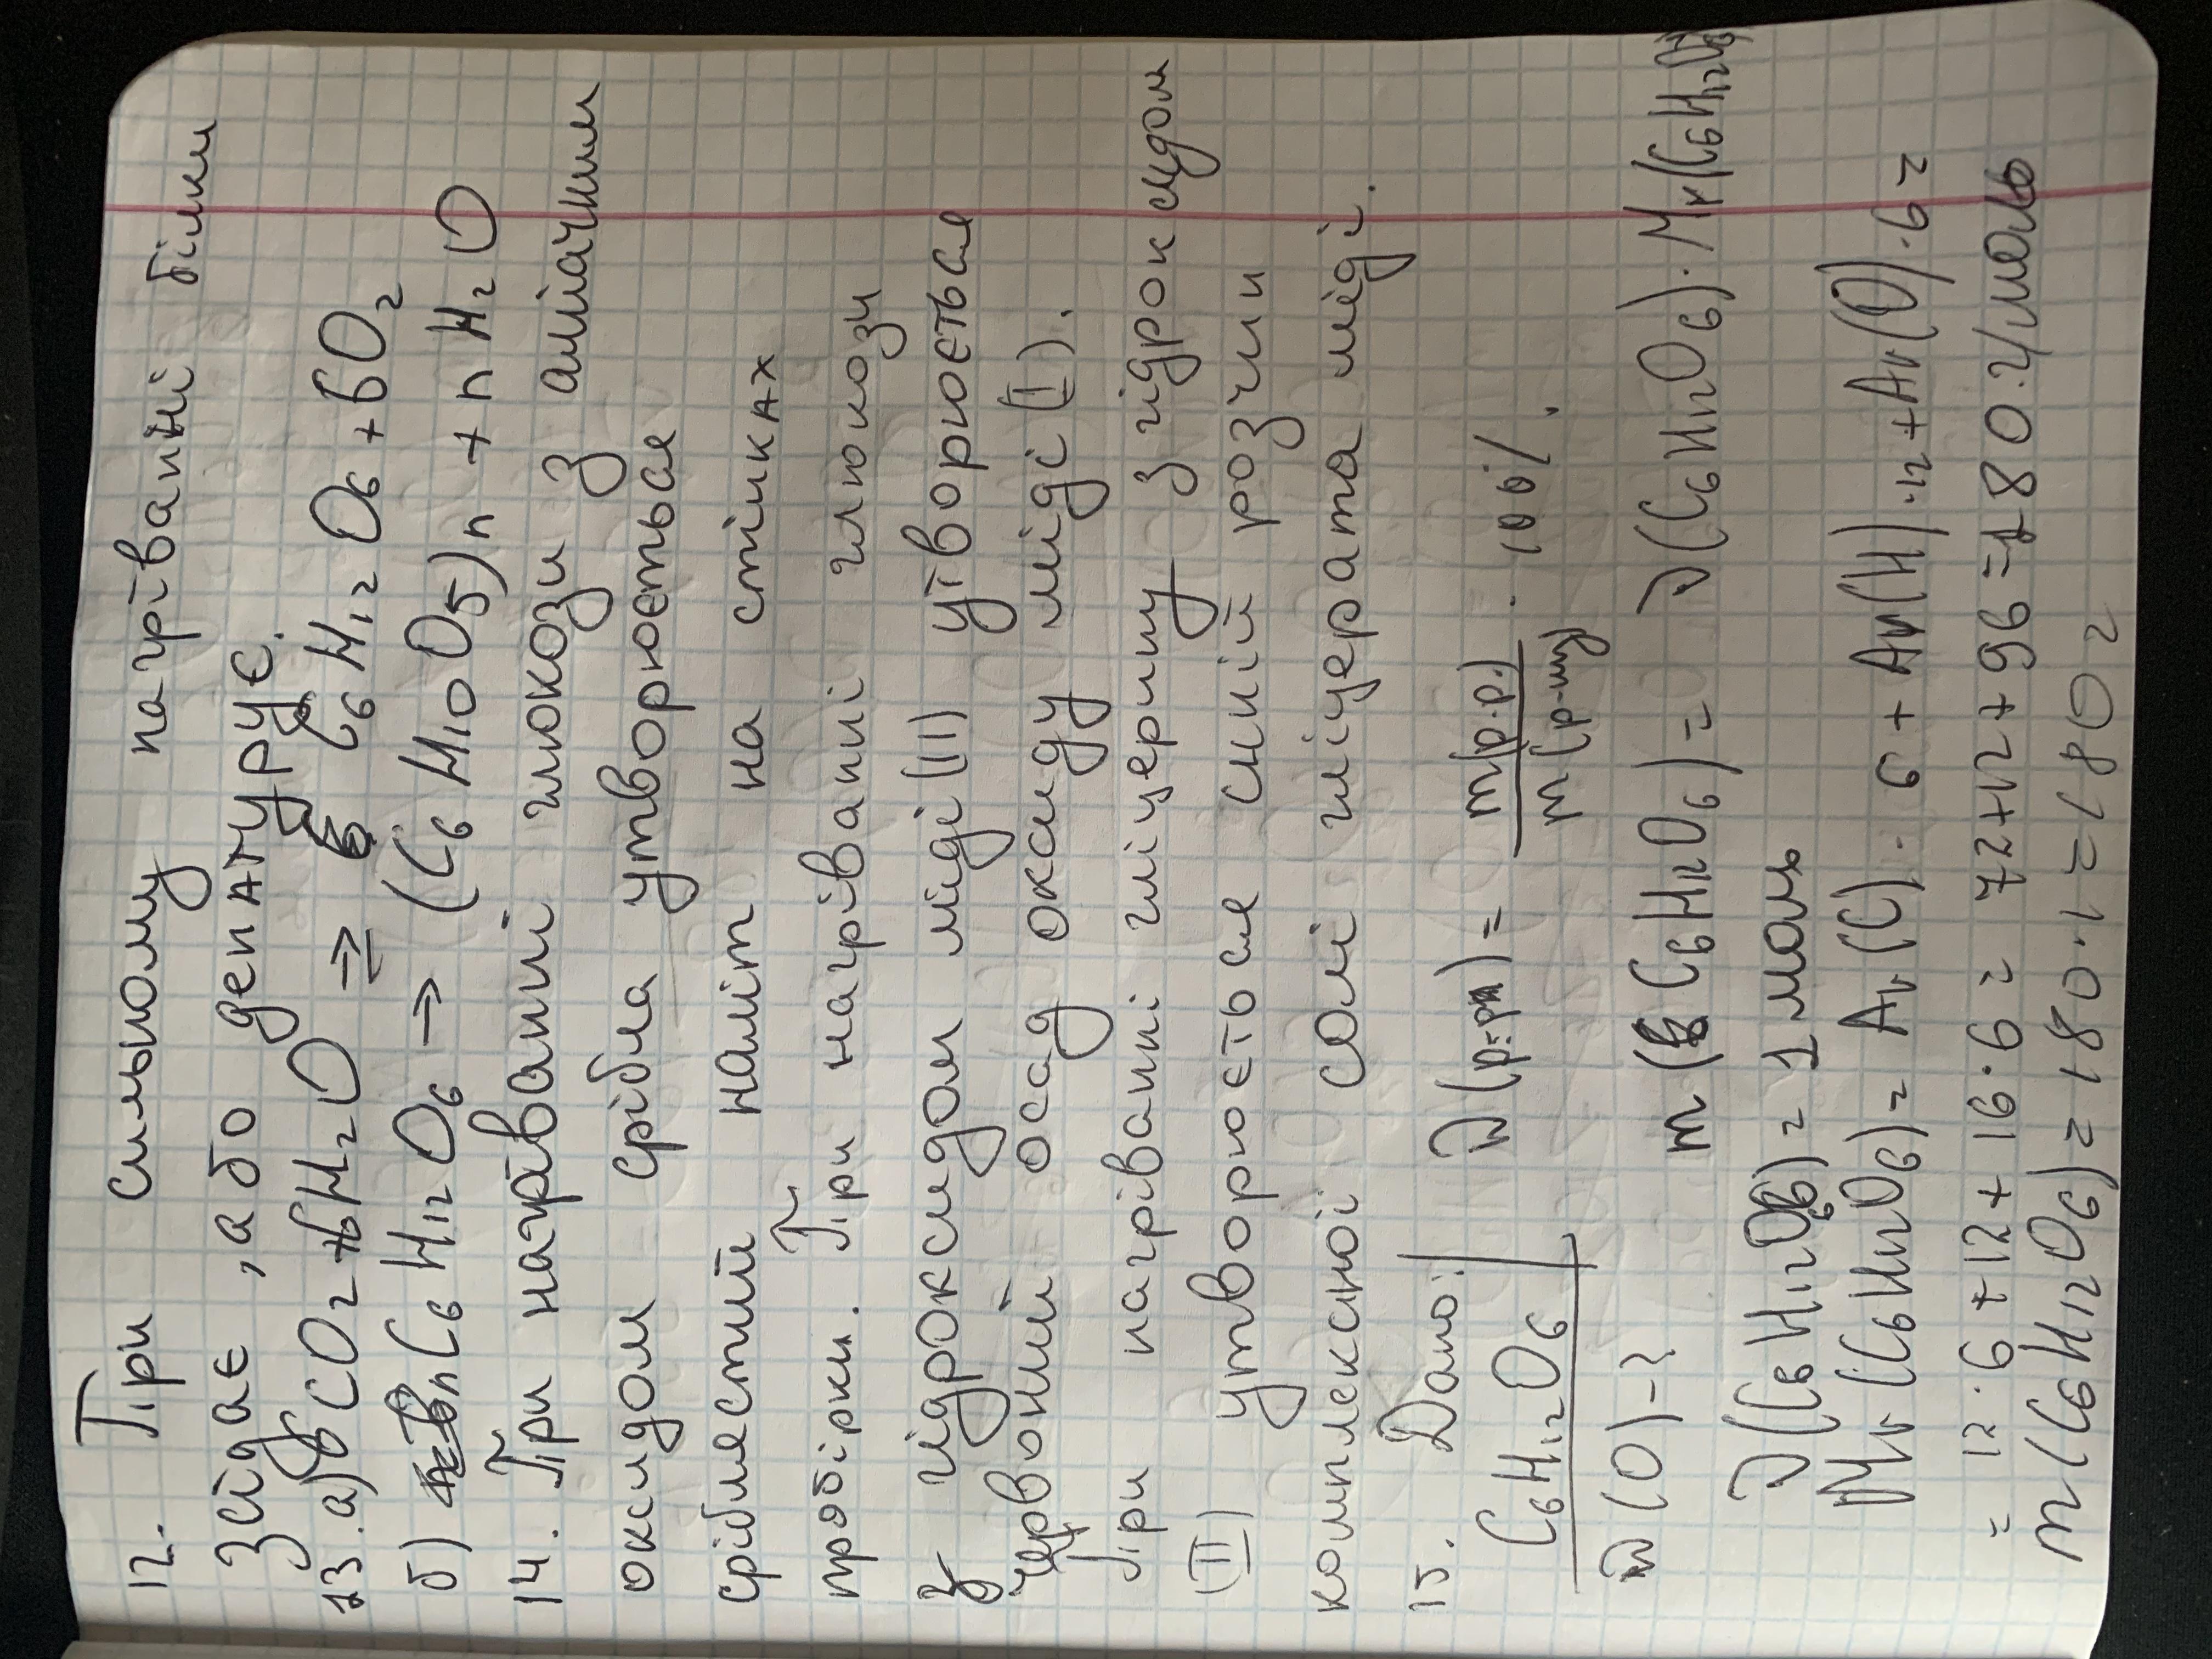 12. При сильному нагріванні білки
зсідає, або денатурує.
13. а) 6CO2 + 6H2O => C6H12O6 + 6O2
б) nC6H12O6 -> (C6H10O5)n + nH2O
14. При нагріванні глюкози з аміачним
оксидом срібла утворюється
сріблястий наліт на стінках
пробірки. При нагріванні глюкози
з гідроксидом міді (II) утворюється
червоний осад оксиду міді (I).
При нагріванні гліцерину з гідроксидом
(II) утворюється синій розчин
комплексної солі гліцерата міді.
15. Дано: W(р.р) = m(р.р)/m(р-ну) · 100%.
C6H12O6
W(O)-? m(C6H12O6) = ν(C6H12O6)·Mr(C6H12O6)
ν(C6H12O6) = 1 моль
Mr(C6H12O6) = Ar(C)·6 + Ar(H)·12 + Ar(O)·6 =
= 12·6+12+16·6 = 72+12+96 = 180 г/моль
m(C6H12O6) = 180·1 = 180 г